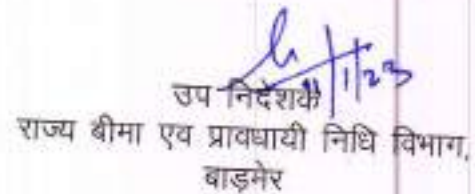 11/1/23
उप निदेशक
राज्य बीमा एव प्रावधायी निधि विभाग,
बाड़मेर